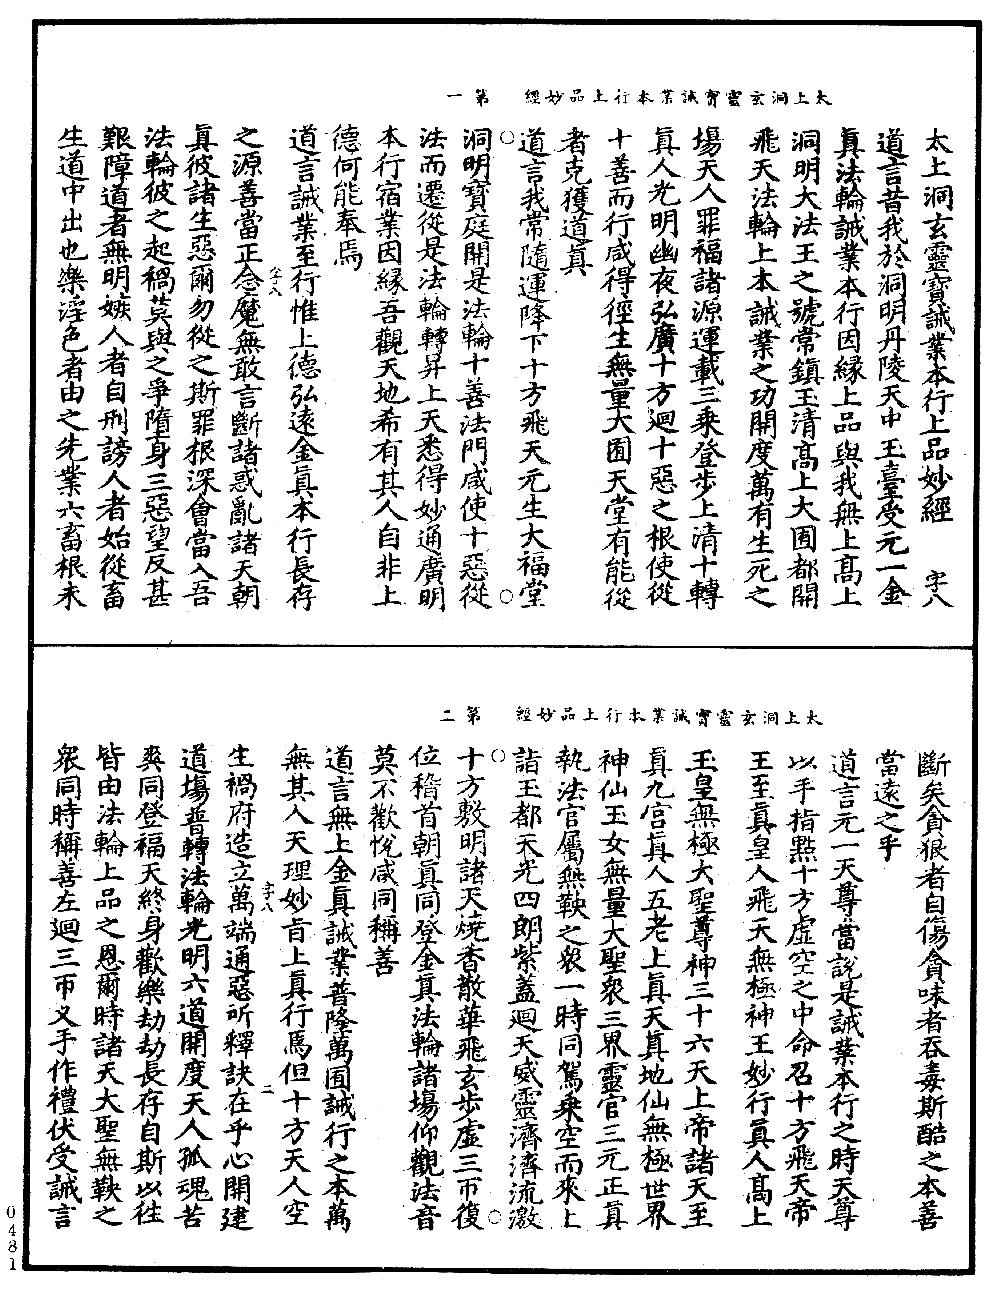 太上洞玄靈寶誡業本行上品妙經　第一
太上洞玄靈寶誡業本行上品妙經　字八
道言昔我於洞明丹陵天中玉臺受元一金
真法輪誡業本行因緣上品與我無上高上
洞明大法王之號常鎮玉清高上大囿都開
飛天法輪上本誡業之功開度萬有生死之
場天人罪福諸源運載三乘登步上清十轉
真人光明幽夜弘廣十方迴十惡之根使從
十善而行咸得徑生無量大囿天堂有能從
者克獲道真
道言我常隨運降下十方飛天元生大福堂
洞明寶庭開是法輪十善法門咸使十惡從
法而遷從是法輪轉昇上天悉得妙通廣明
本行宿業因緣吾觀天地希有其人自非上
德何能奉焉
字八
道言誡業至行惟上德弘遠金真本行長存
之源善當正念魔無敢言斷諸惑亂諸天朝
真彼諸生惡爾勿從之斯罪根深會當入吾
法輪彼之起禍莫與之爭墮身三惡望反甚
艱障道者無明嫉人者自刑謗人者始從畜
生道中出也樂淫色者由之先業六畜根未
太上洞玄靈寶誡業本行上品妙經　第二
斷矣貪狠者自傷貪味者吞毒斯酷之本善
當遠之乎
道言元一天尊當說是誡業本行之時天尊
以手指點十方虛空之中命召十方飛天帝
王至真皇人飛天無極神王妙行真人高上
玉皇無極大聖尊神三十六天上帝諸天至
真九宮真人五老上真天真地仙無極世界
神仙玉女無量大聖眾三界靈官三元正真
執法官屬無鞅之眾一時同駕乘空而來上
詣玉都天光四朗紫蓋迴天威靈濟濟流激
十方敷明諸天燒香散華飛玄步虛三帀復
位稽首朝真同登金真法輪諸場仰觀法音
莫不歡悅咸同稱善
道言無上金真誡業普隆萬囿誡行之本萬
無其人天理妙旨上真行焉但十方天人空
字八　二
生禍府造立萬端通惡所釋訣在乎心開建
道場普轉法輪光明六道開度天人孤魂苦
爽同登福天終身歡樂劫劫長存自斯以往
皆由法輪上品之恩爾時諸天大聖無鞅之
眾同時稱善左迴三帀叉手作禮伏受誡言
0481